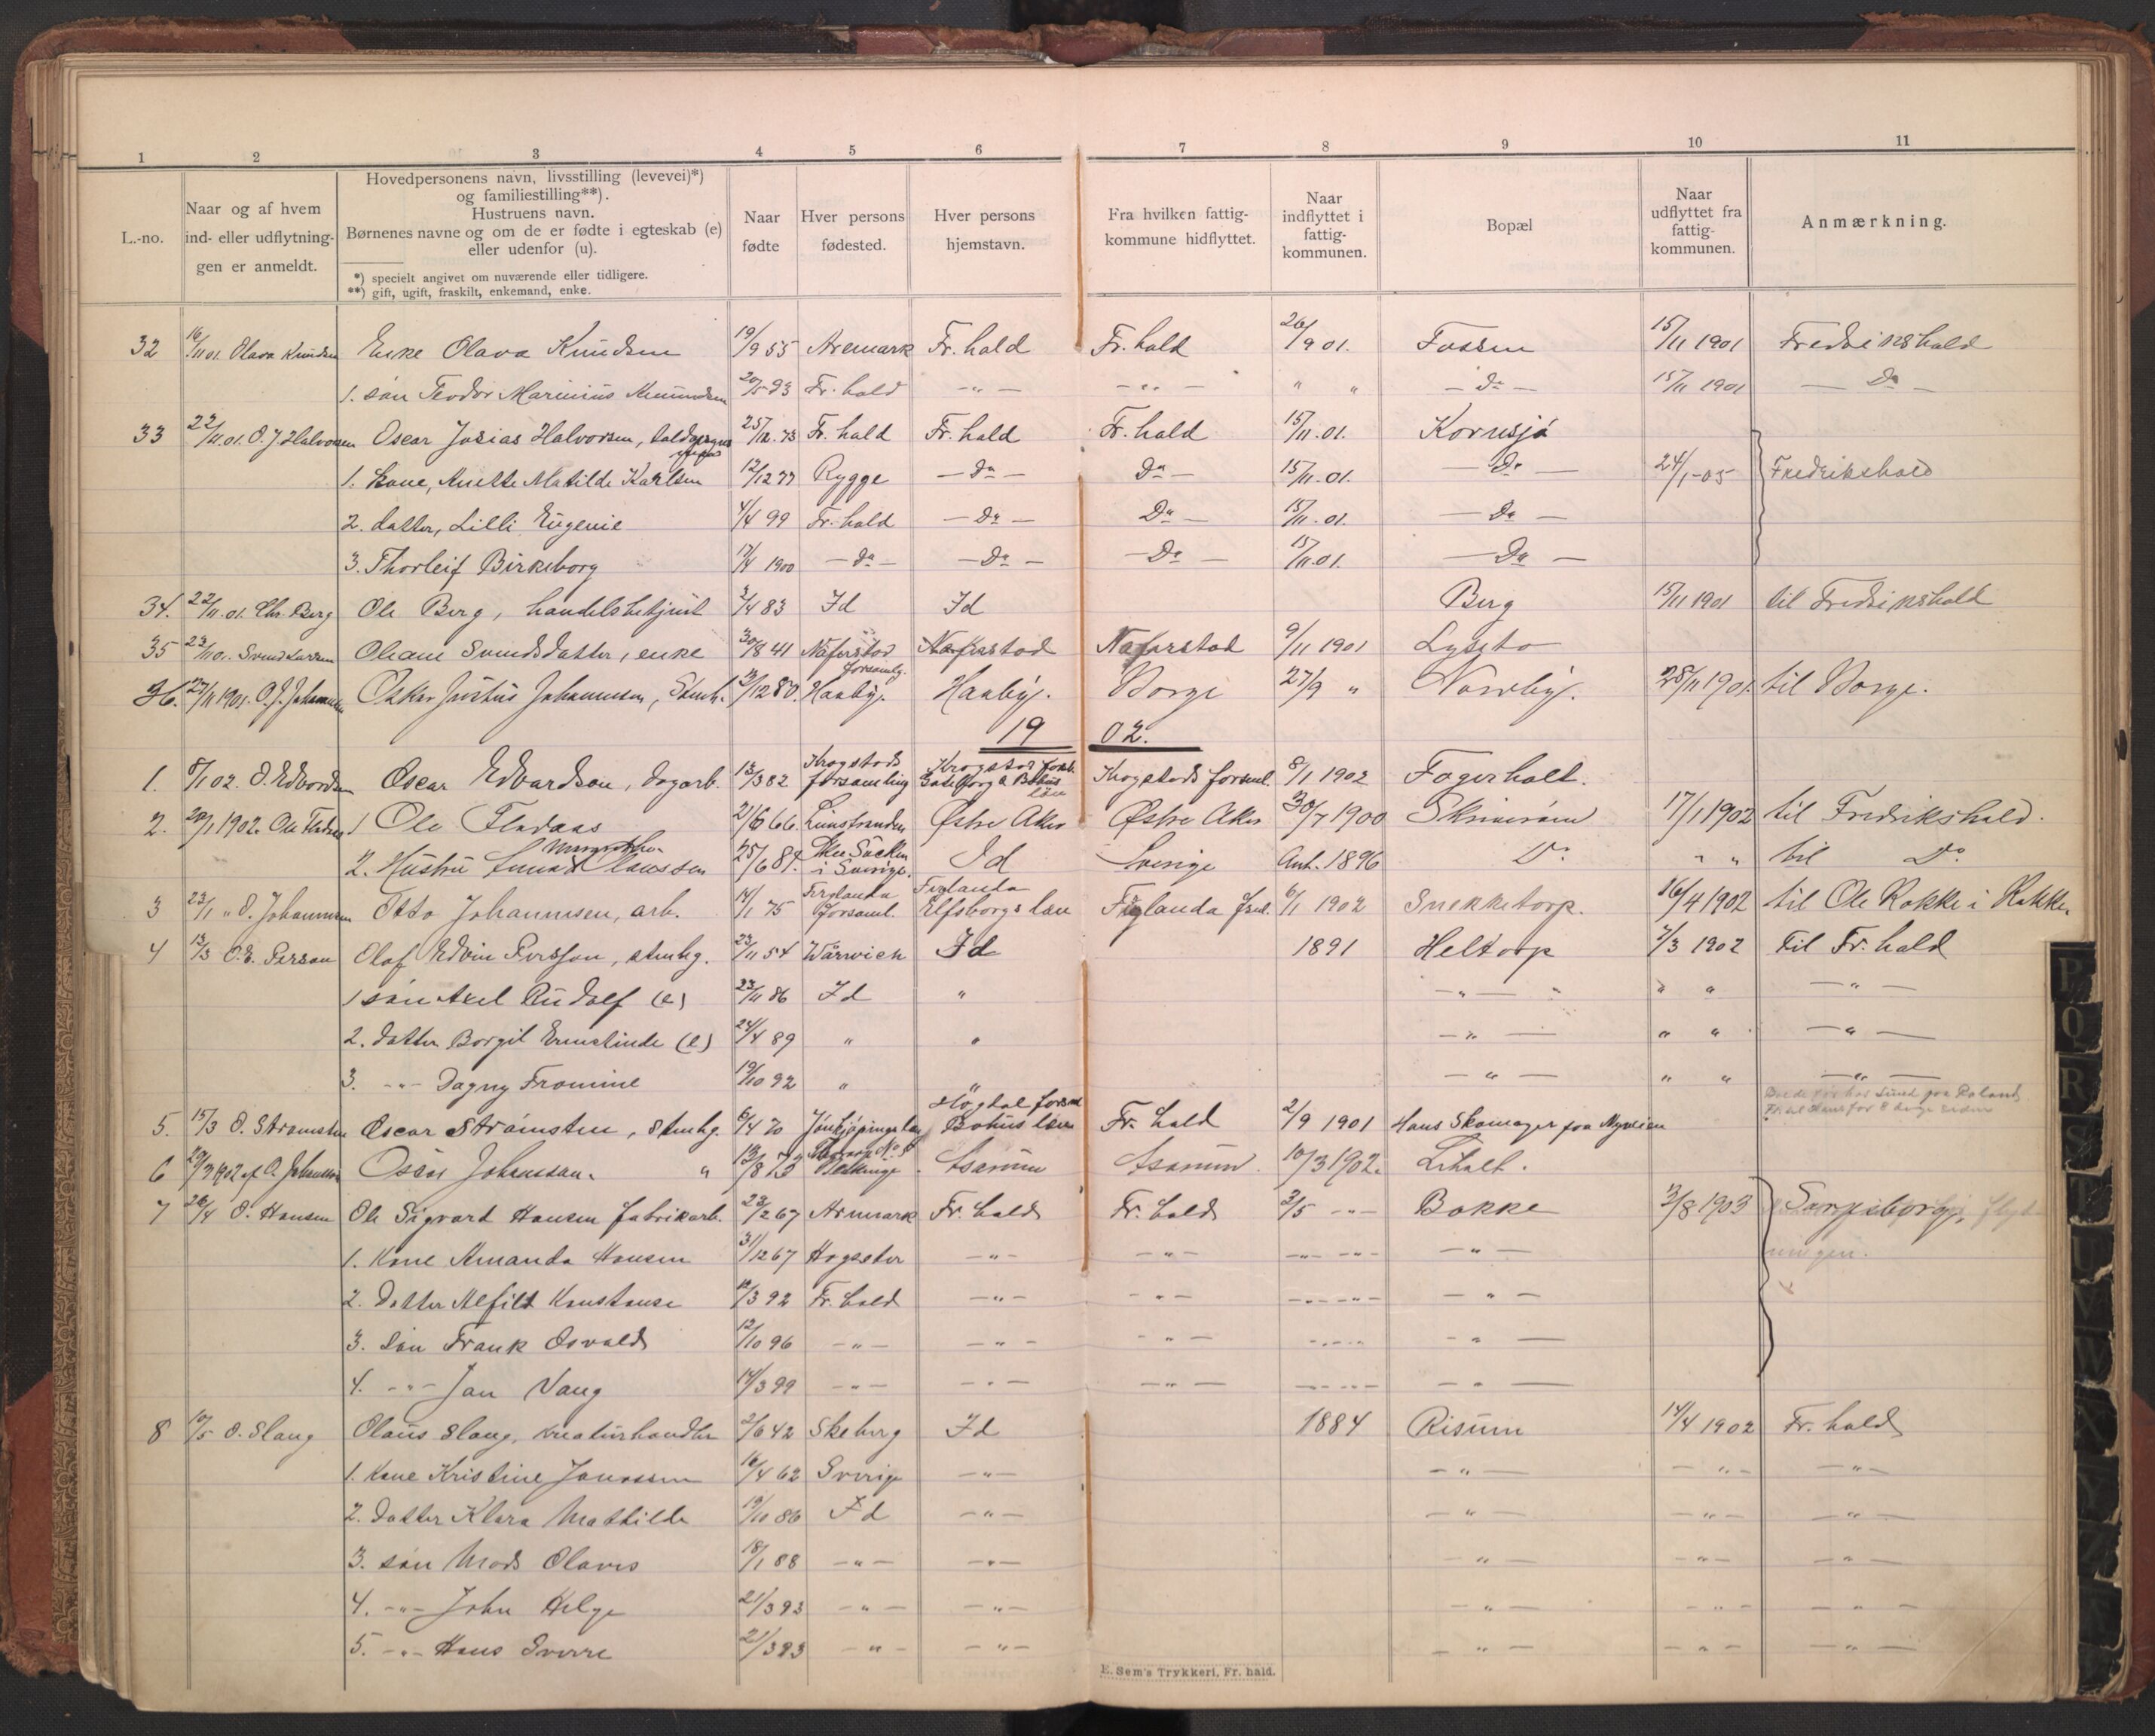 1 2 3 4 5 6 7 8 9 10 11
L.-no.
Naar og af hvem ind- eller udflytningen er anmeldt.
Hovedpersonens navn, livsstilling (levevei)*) og familiestilling**).
Hustruens navn.
Børnenes navne og om de er fødte i egteskab (e) eller udenfor (u).
*) specielt angivet om nuværende eller tidligere.
**) gift, ugift, fraskilt, enkemand, enke.
Naar fødte
Hver persons fødested.
Hver persons hjemstavn.
Fra hvilken fattigkommune hidflyttet.
Naar indflyttet i fattigkommunen.
Bopæl
Naar udflyttet fra fattigkommunen.
Anmærkning.
32 16/11 01. Olava Knudsen Enke Olava Knudsen 19/9 55 Aremark Fr. hald Fr. hald 26/9 01. Fossen 15/11 1901 Fredrikshald
1. søn Teodor Marinius 20/5 93 Fr. hald -"- -"- " " - Do - 15/11 1901 - Do -
33 22/11.01. O. J. Halvorsen Oscar Josias Halvorsen, 25/12 73 Fr. hald Fr. hald Fr. hald 15/11.01. Kornsjø
1. Kone, Anette Matilde Karlsen 12/12 77 Rygge - Do - Do - 15/11.01. - Do - 24/1-05 Fredrikshald
2. datter, Lilli Eugenie 4/4 99 Fr. hald - Do - Do - 15/11.01. - Do -
3. Thorleif Birkeborg 17/4 1900 - do - - Do - - Do - 15/11.01. - Do -
34. 22/11.01. Chr. Berg Ole Berg, handelsbetjent 3/4 83 Id Id Berg 15/11 1901 til Fredrikshald
35 23/11 01. Svend Larsen Oliane Svendsdatter, enke 30/8 41 Naferstad Naferstad Naferstad 9/11 1901 Lysato
36. 27/11 1901. O. J. Johannesen Oskar Justus Johannesen, Stenh. /12 80. Haaby forsamlg. Haaby. Borge 27/9 " Norrby. 28/11 1901. til Borge.
19 02.
1. 8/1 02. O. Edvardsen Oscar Edvardson, dagarb. 13/3 82 Krogstads forsamling Krogstad fors. Gøteborg & Bohus län Krogstads forsml. 8/1 1902 Fagerholt.
2. 20/1 1902. Ole Fladaas 1 Ole Fladaas 21/6 66. Østre Aker Østre Aker 30/7 1900 17/1 1902 til Fredrikshald.
2. Hustru Clausson 25/6 8 i Sverige. Id Sverige Ank. 1896 Do " " til Do
3 23/1 " O. Johannesen Otto Johannesen, arb. 14/1 75 Forsaml. Elfsborgs län 6/1 1902 Snekketorp. 16/4 1902 til Ole Rokke i Rokke
4 13/3 O. E. Persson Olof Edvin Persson, stenhg. 22/11 54 Wärwich Id 1891 Heltorp 7/3 1902 Til Fr. hald
1 søn Axel Rudolf (e) 23/11 86 Id " -"- " " " -"-
2. datter Borgil Ernstinde (e) 24/4 89 " " -"- " " -"-
3. -"- Dagny Fromine 19/10 92 " " -"- " " -"-
5. 15/3 O. Strömsten Oscar Strömsten, stenhg. 6/4 70 Jönköpings län Högdal forsml Bohus län Fr. hald 2/9 1901 Hans Skomager paa
6 20/3 1902 af O. Johansson Oscar Johansson. " 13/8 73 Blekinge Asarum Asarum. 10/3 1902. Liholt.
7 26/4 O. Hansen Ole Sigvart Hansen fabrikarb. 23/2 67 Aremark Fr. hald Fr. hald 3/5 -"- Bakke 3/8 1903 Sarpsborg
1. Kone Amanda Hansen 31/12 67 Hogseter -"- -"- -"- -"- -"-
2. Datter Alfild Konstanse 12/3 92 Fr. hald -"- -"- -"- -"-
3. Søn Frank Osvald 12/10 96 -"- -"- -"- -"- -"-
4. -"- Jan Vang 14/3 99 -"- -"- -"- -"- -"-
8 10/5 O. Slang Olaus Slang, kreaturhandler 2/6 42 Skeberg Id 1884 Risum 14/4 1902 Fr. hald
1. Kone Kristine Jonassen 16/4 62 Sverige -"- -"- -"- -"-
2. Datter Klara Mathilde 19/10 86 Id -"- -"- -"- -"-
3. søn Mads Olaves 18/1 88 -"- -"- -"- -"- -"-
4. -"- John Helge 21/3 93 -"- -"- -"- -"- -"-
5. -"- Hans Sverre 21/3 93 -"- -"- -"- -"- -"-
E. Sem's Trykkeri, Fr. hald.
P
Q
R
S
T
U
V